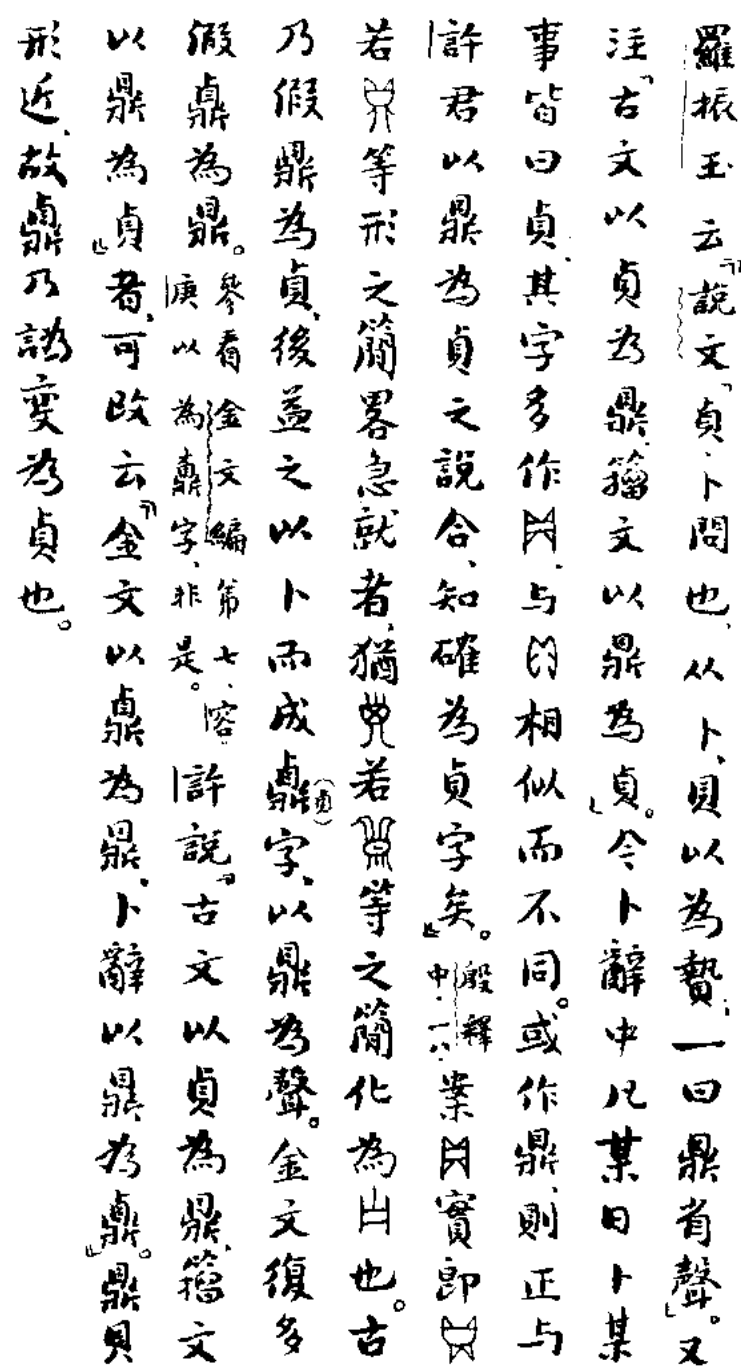 羅振玉云『說文「貞、卜問也、从卜、貝以為贄；一曰鼎省聲」。又
注「古文以貞為鼎、籀文以鼎為貞」。今卜辭中凡某日卜某
事皆曰貞、其字多作、与相似而不同。或作鼎、則正与
許君以鼎為貞之說合、知確為貞字矣』。殷釋中·一八 案實即
若等形之簡畧急就者、猶若等之簡化為也。古
乃假鼎為貞、後益之以卜而成鼑（貞）字、以鼎為聲。金文復多
假鼑為鼎。參看金文編第七、容庚以為鼑字、非是。許說『古文以貞為鼎、籀文
以鼎為貞』者、可改云『金文以鼑為鼎、卜辭以鼎為鼑』。鼎貝
形近、故鼑乃譌變為貞也。